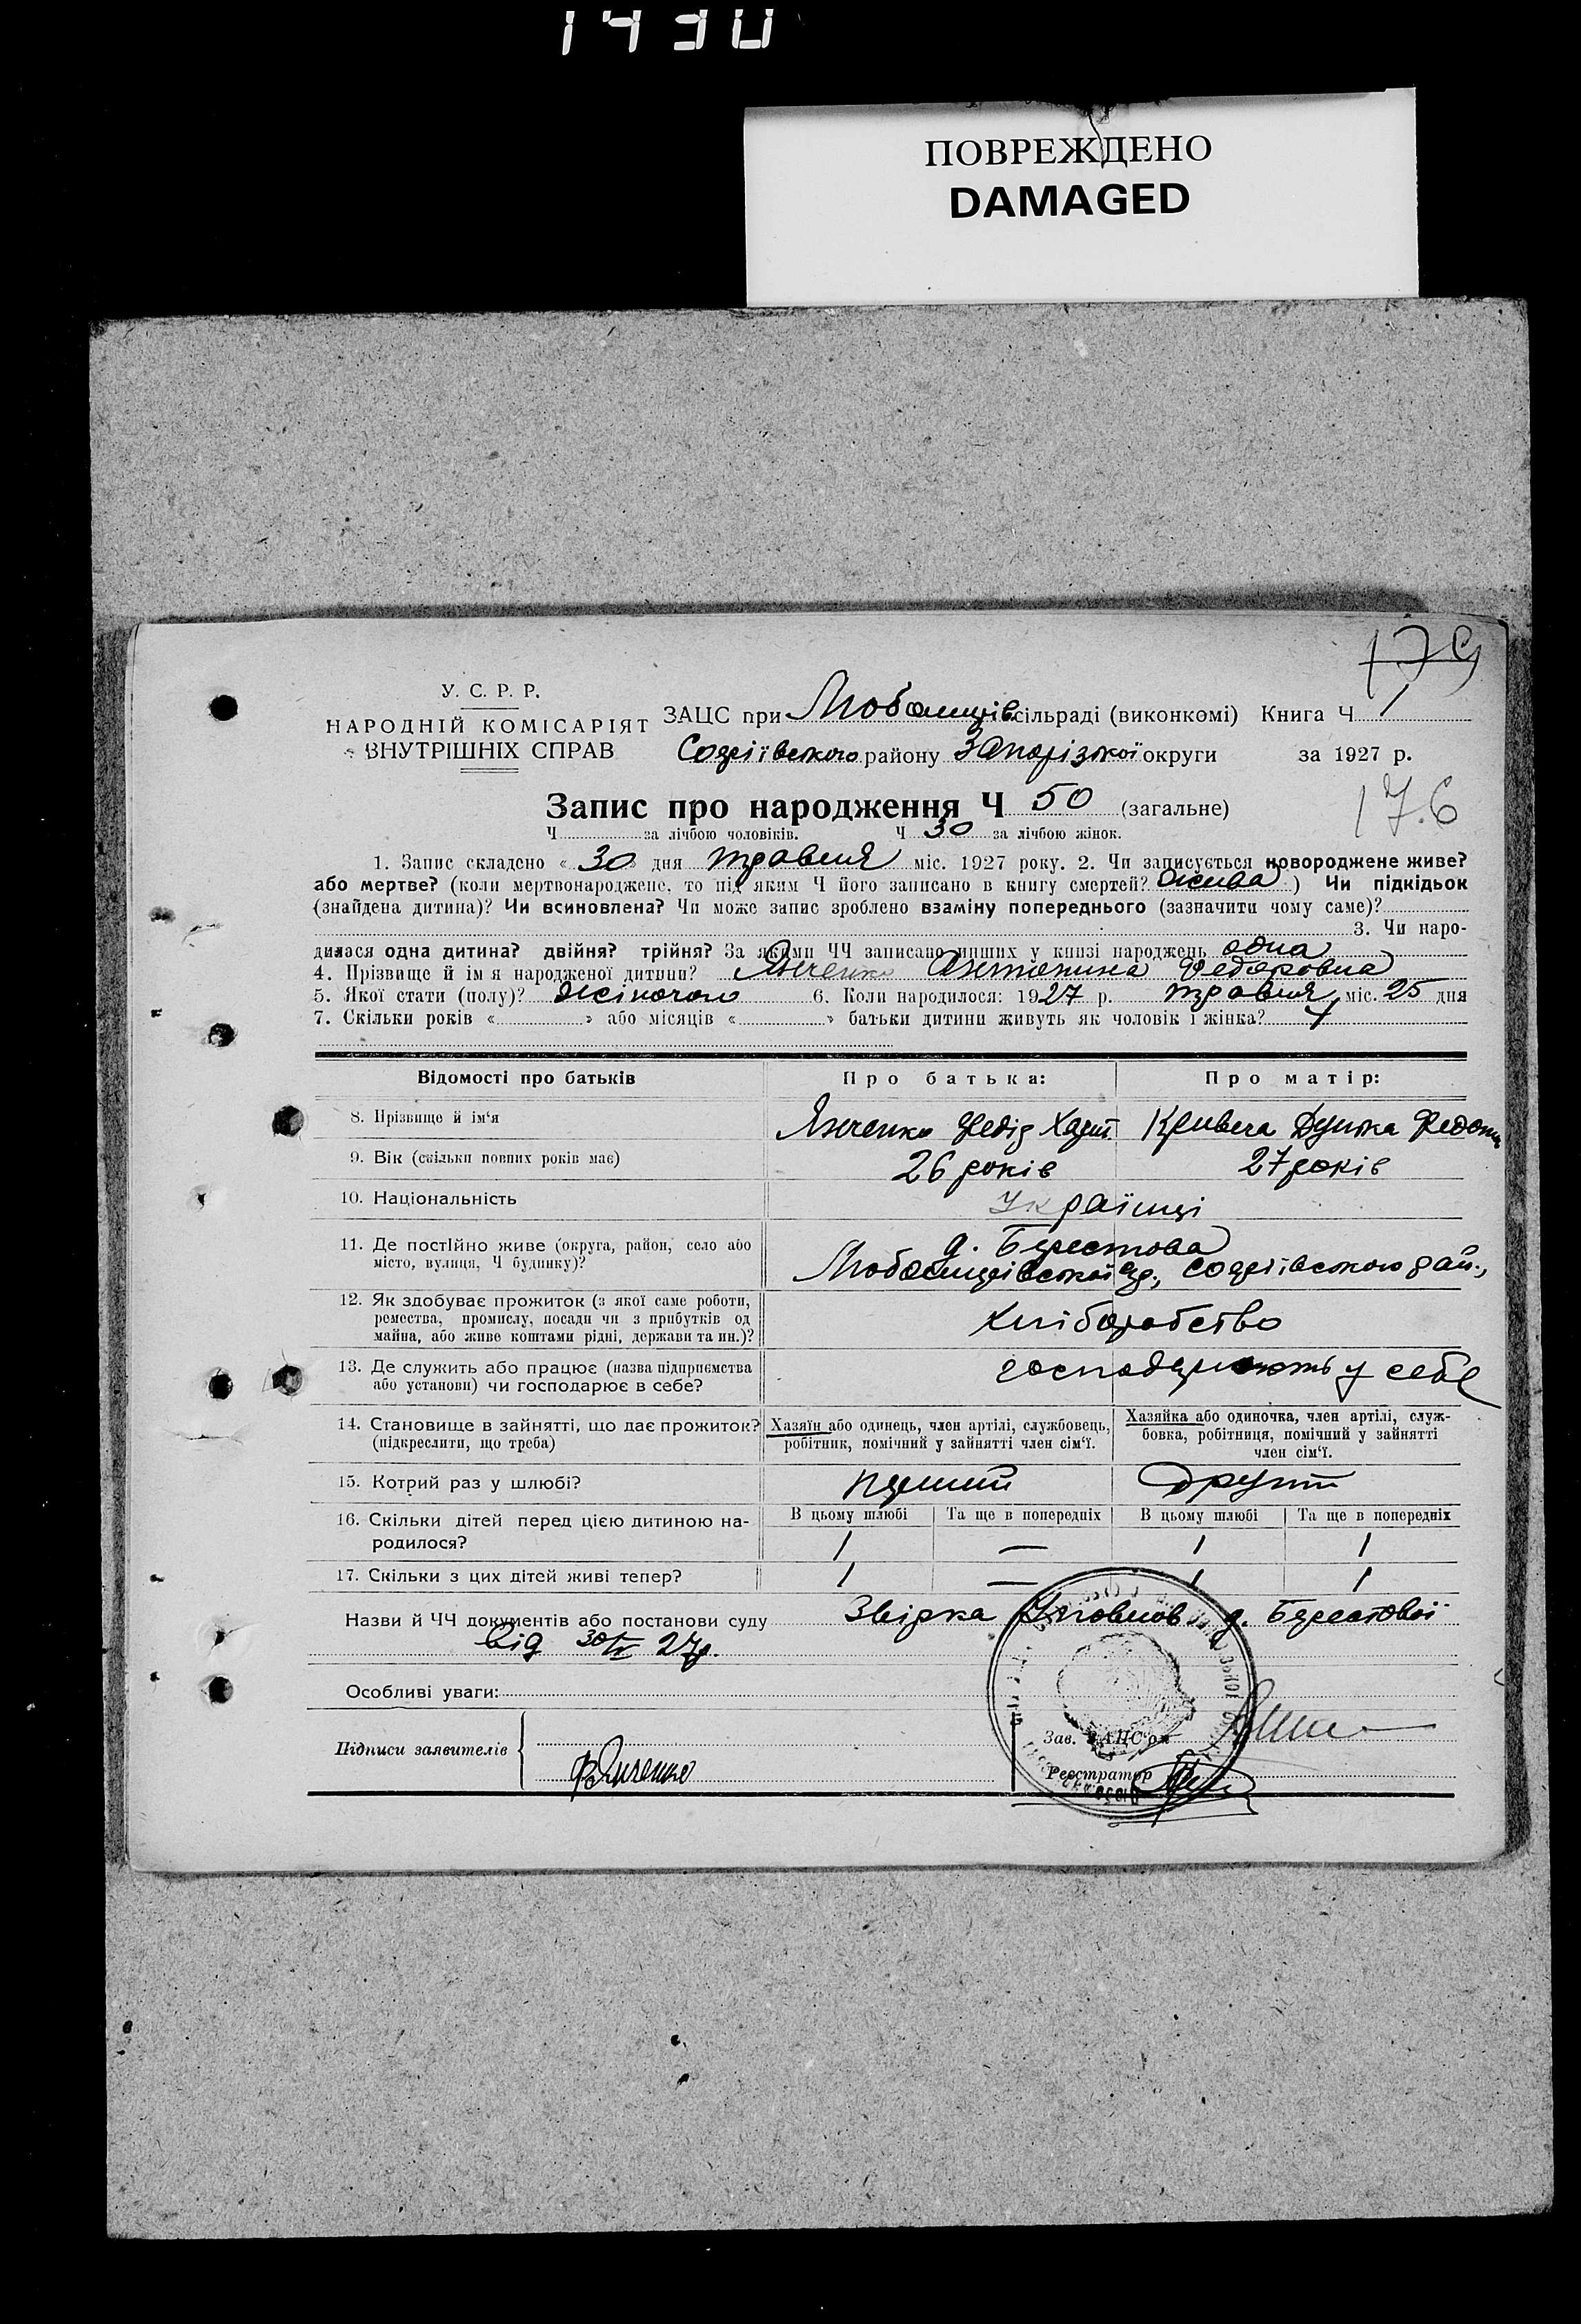 1430
ПОВРЕЖДЕНО
DAMAGED
179
У. С. Р. Р.
НАРОДНІЙ КОМІСАРІЯТ
ВНУТРІШНІХ СПРАВ
ЗАЦС при Любомирів сільраді (виконкомі) Книга Ч 1
Софіївського району Запорізької округи за 1927 р.
Запис про народження Ч 50 (загальне)
176
Ч за лічбою чоловіків. Ч 30 за лічбою жінок.
1. Запис складено « 30 » дня травня міс. 1927 року. 2. Чи записується новороджене живе?
або мертве? (коли мертвонароджене, то під яким Ч його записано в книгу смертей? жива ) Чи підкідьок
(знайдена дитина)? Чи всиновлена? Чи може запис зроблено взаміну попереднього (зазначити чому саме)?
3. Чи наро-
дилася одна дитина? двійня? трійня? За якими ЧЧ записано инших у книзі народжень одна
4. Прізвище й ім я народженої дитини? Янченко Антонина Федоровна
5. Якої стати (полу)? жіночого 6. Коли народилося: 1927 р. травня міс. 25 дня
7. Скільки років « » або місяців « » батьки дитини живуть як чоловік і жінка? 4
Відомості про батьків
Про батька:
Про матір:
8. Прізвище й ім'я
Янченко Федір
Кривега Федотів
9. Вік (скільки повних років має)
26 років
27 років
10. Національність
Українці
11. Де постійно живе (округа, район, село або
місто, вулиця, Ч будинку)?
д. Берестова
Любомирівської Софіївського рай.,
12. Як здобуває прожиток (з якої саме роботи,
ремества, промислу, посади чи з прибутків од
майна, або живе коштами рідні, держави та ин.)?
хліборобство
13. Де служить або працює (назва підприємства
або установи) чи господарює в себе?
господарюють у себе
14. Становище в зайнятті, що дає прожиток?
(підкреслити, що треба)
Хазяїн або одинець, член артілі, службовець,
робітник, помічний у зайнятті член сім'ї.
Хазяйка або одиночка, член артілі, служ-
бовка, робітниця, помічний у зайнятті
член сім'ї.
15. Котрий раз у шлюбі?
перший
другий
16. Скільки дітей перед цією дитиною на-
родилося?
В цьому шлюбі
Та ще в попередніх
В цьому шлюбі
Та ще в попередніх
1 — 1 1
17. Скільки з цих дітей живі тепер?
1 — 1 1
Назви й ЧЧ документів або постанови суду Звірка Уповнов д. Берестової
від 30/V 27р.
Особливі уваги:
Підписи заявителів
Ф Янченко
Зав. ЗАЦС'ом
Реєстратор